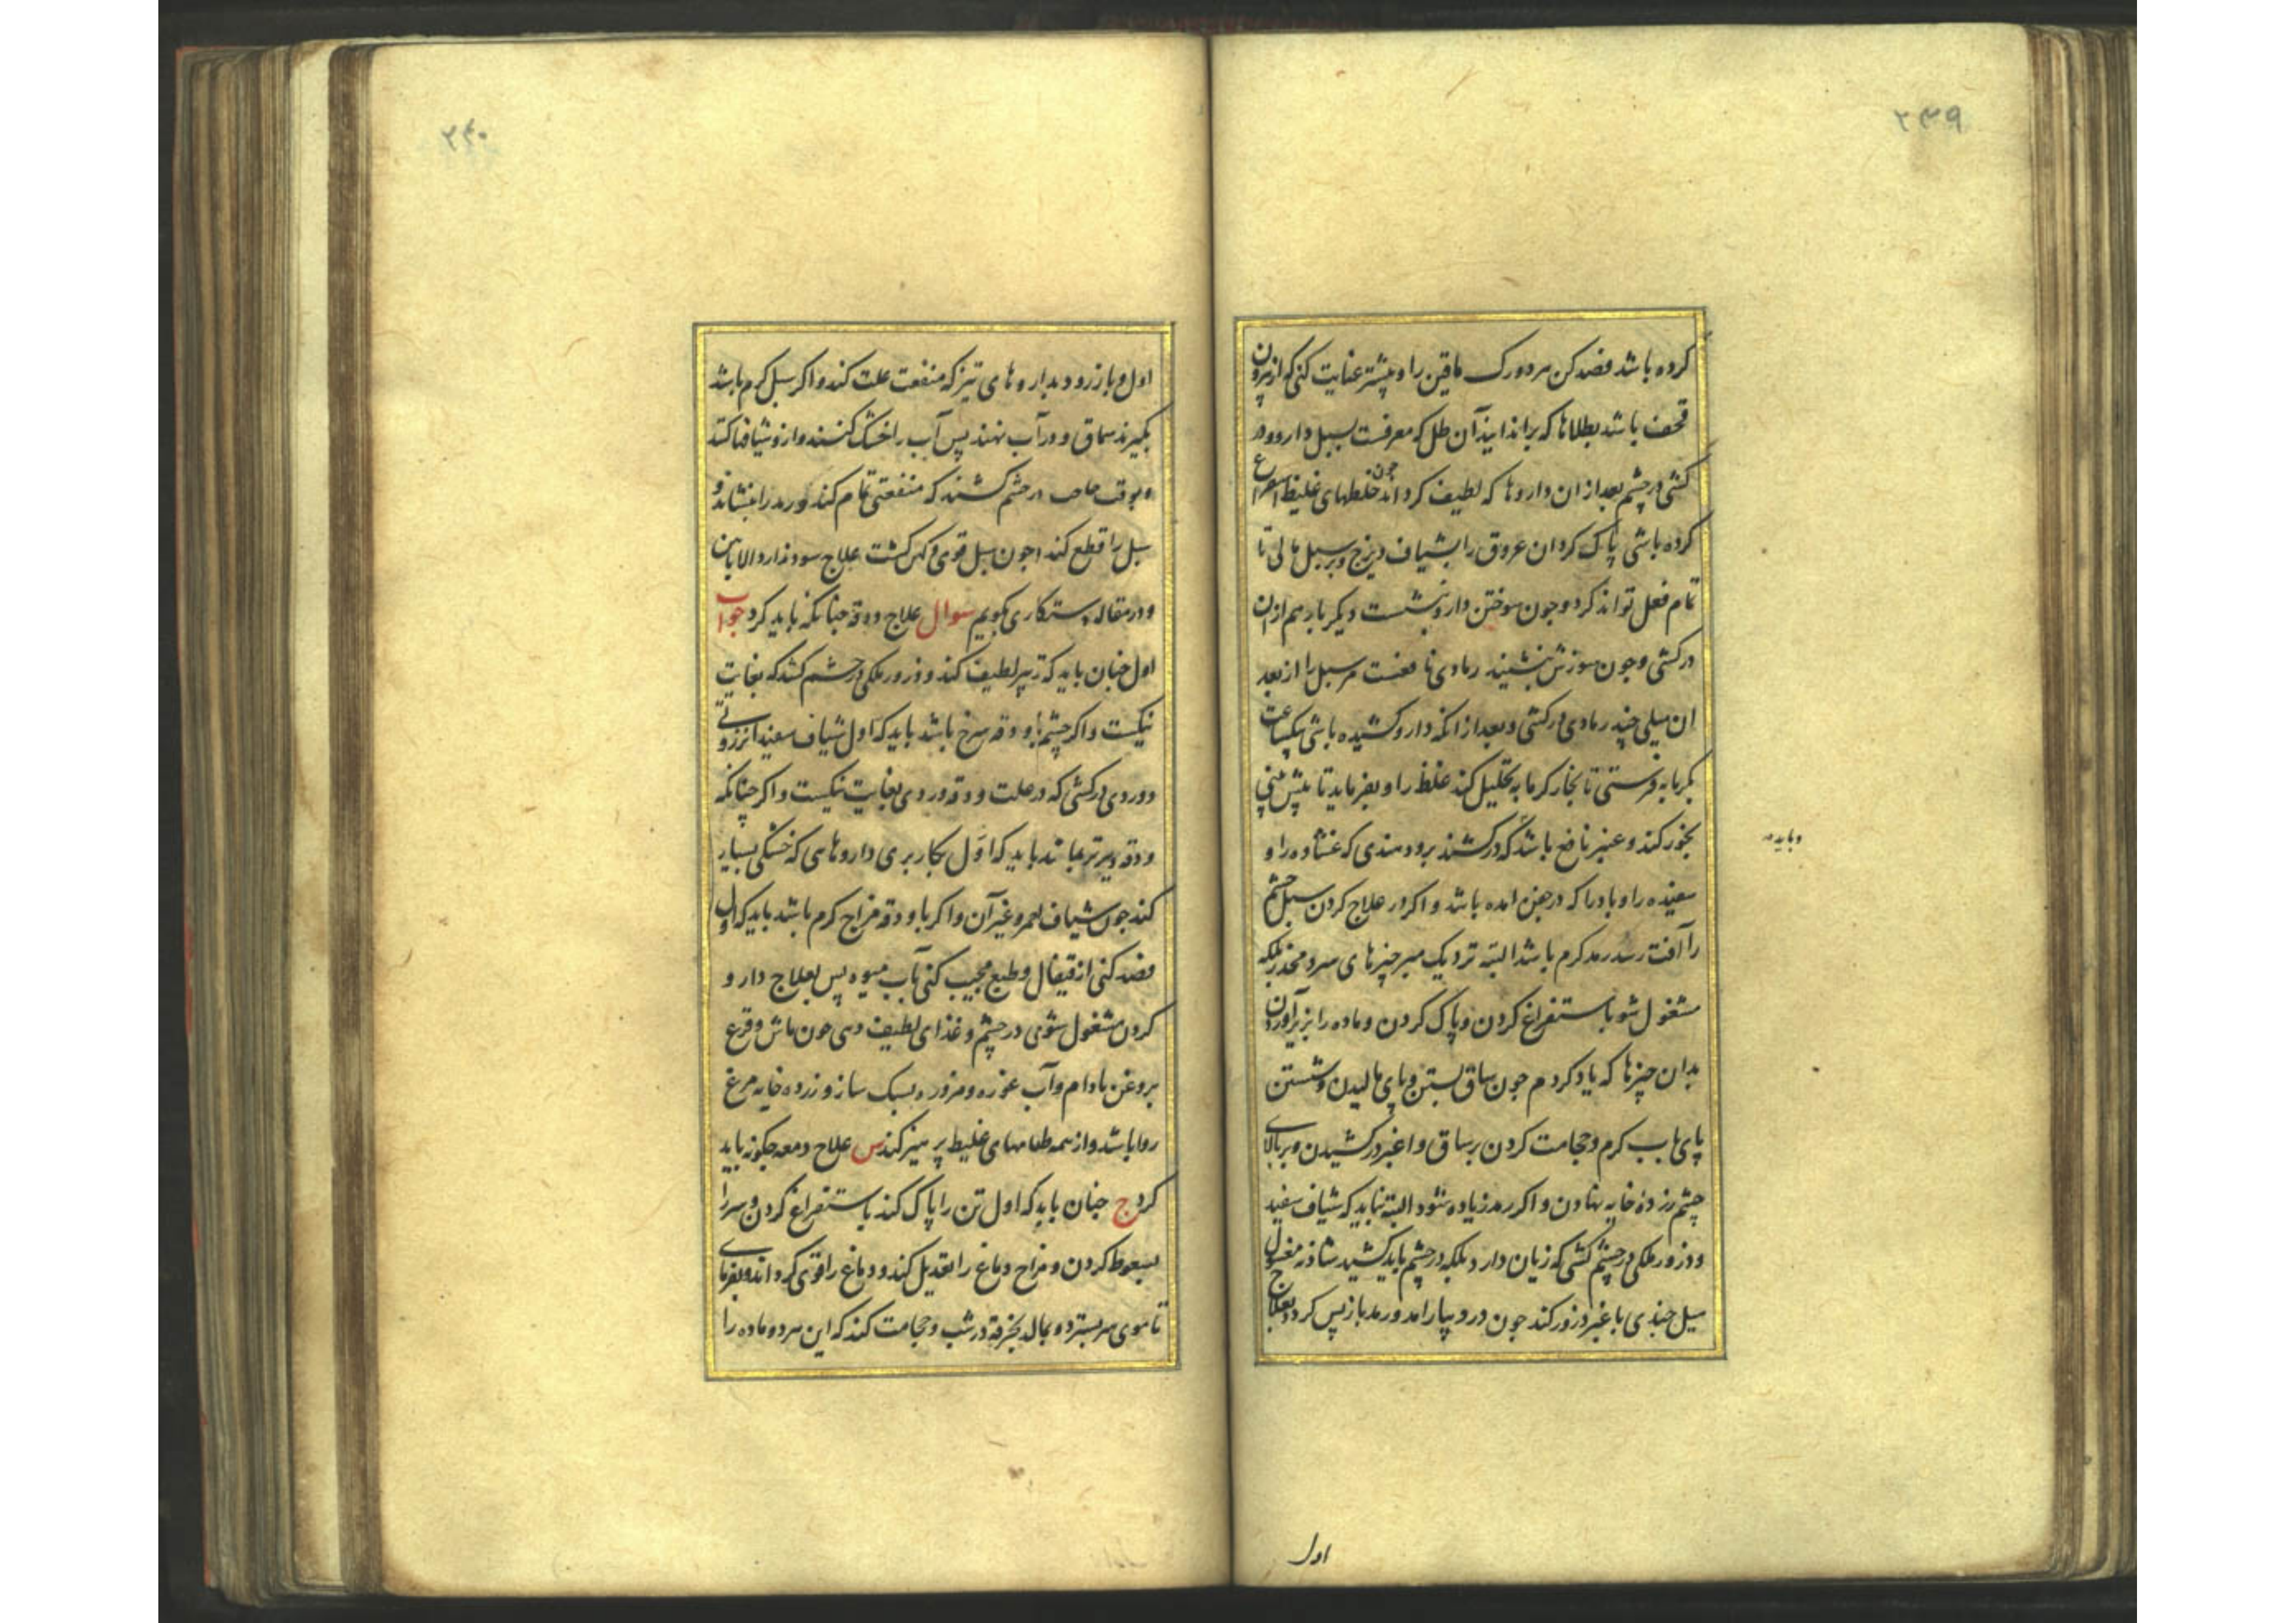 ۲۳۹
کرده باشد فصد کن هر دو رک ماقین را و بیشتر عنایت کنی که از بیرون
قحف باشد بطلاها که براندایند آن طل که معرفست بسبل دارو و در
کشی در چشم بعد از ان داروها که لطیف کرداند چون خلطهای غلیظ استفراغ
کرده باشی پاک کردان عروق را بشیاف دیزج و بر سبل مالی تا
تمام فعل تواند کرد و جون سوختن دارو بنشست دیکر بار هم از ان
درکشی و جون سوزش بنشیند رمادی نافعست مر سبل را از بعد
ان میلی چند رمادی درکشی و بعد از انکه دارو کشیده باشی بیکساعت
بکرمابه فرستی تا بخار کرمابه تحلیل کند غلظ را و بفرماید تا پیش بینی
بخور کند و عنبر نافع باشد که درکشند برود هندی که غشاوه را و
سفیده را و باد را که در جفن امده باشد و اکر در علاج کردن سبل چشم
را آفت رسد رمد کرم باشد البته نزدیک مبر چیزهای سرد و مخدر بلکه
مشغول شو باستفراغ کردن و پاک کردن و ماده را بزیر آوردن
بدان چیزها که یاد کردم جون ساق بستن و پای مالیدن و شستن
پای باب کرم و حجامت کردن بر ساق و اغبر درکشیدن و بر بالای
چشم زردۀ خایه نهادن و اکر رمد زیاده شود البته نباید که شیاف سفید
و ذرور ملکی در چشم کشی که زیان دارد بلکه در چشم باید کشید شاذنه مغسول
میل چندی با غبر ذرور کند جون درد بیارامد و رمد باز پس کردد بعلاج
و باید
اول
۲۴۰
اول و باز رود بداروهای تیز که منفعت علت کند و اکر سبل کرم باشد
بکیرند سماق و در آب نهند پس آب را خشک کنند و از و شیافها کنند
و بوقت حاجت در چشم کشند که منفعتی تمام کند و رمد را بنشاند و
سبل را قطع کند و جون سبل قوی و کهن کشت علاج سود ندارد الا باهن
و در مقاله دستکاری بکویم سوال علاج ودقه چنانکه باید کرد جواب
اول چنان باید که تدبیر لطیف کند و ذرور ملکی در چشم کشد که بغایت
نیکست و اکر چشم با ودقه سرخ باشد باید که اول شیاف سفید انزروتی
و وردی درکشی که در علت ودقه وردی بغایت نیکست و اکر چنانکه
ودقه دیرتر بماند باید که اول بکار بری داروهای که خشکی بسیار
کند جون شیاف احمر و غیر آن و اکر با ودقه مزاج کرم باشد باید که اول
فصد کنی از قیفال و طبع مجیب کنی بآب میوه پس بعلاج دارو
کردن مشغول شوی در چشم و غذای لطیف دهی جون ماش و قرع
بروغن بادام و آب غوره و مزوره سبک سازو زرده خایه مرغ
روا باشد و از همه طعامهای غلیظ پرهیز کند س علاج دمعه چکونه باید
کرد ج چنان باید که اول تن را پاک کند باستفراغ کردن و سر را
بسعوط کردن و مزاج دماغ را تعدیل کند و دماغ را قوی کرداند و بفرمای
تا موی سر بسترد و بمالد بخرقه درشت و حجامت کند که این هر دو ماده را